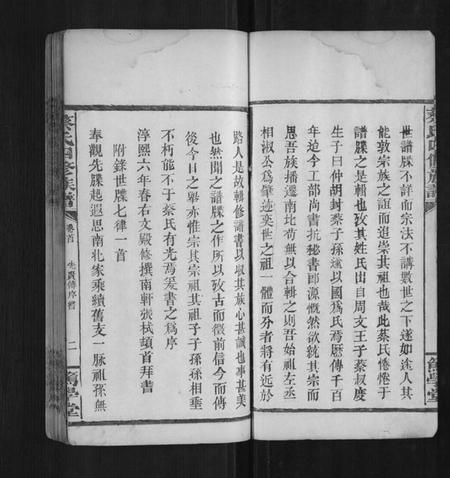 世譜牒不詳而宗法不講數世之下遂如途人其
能敦宗族之誼而追崇其祖也哉此蔡氏惓惓于
譜牒之是輯也攷其姓氏出自周文王子蔡叔度
生子曰仲胡封蔡子孫遂以國為氏焉歷傳千百
年迨今工部尚書抗秘書郎源慨然欲統其宗而
思吾族播遷南北苟無以合輯之則吾始祖左丞
相淑公為肇迹奕世之祖一體而分者將有近於
蔡氏四修族譜
篤學堂
路人是故輯修譜書以収其族心甚誠也事甚美
也然聞之譜牒之作所以攷古而徵前信今而傳
後今日之舉亦惟宗其宗祖其祖子子孫孫相垂
不朽能不于蔡氏有光焉爰書之為序
淳熙六年春右文殿修撰南軒張栻頓首拜書
附錄世牒七律一首
奉觀先牒起遐思南北家乘續舊支一脉祖孫無
蔡氏四修族譜
卷首
序
二
篤學堂